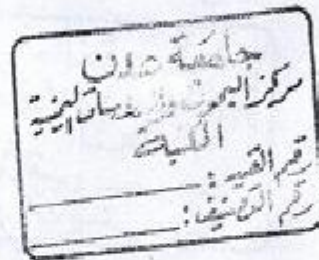 جامعة عدن
مركز البحوث والدراسات اليمنية
المكتبة
رقم القيد :
رقم التصنيف :